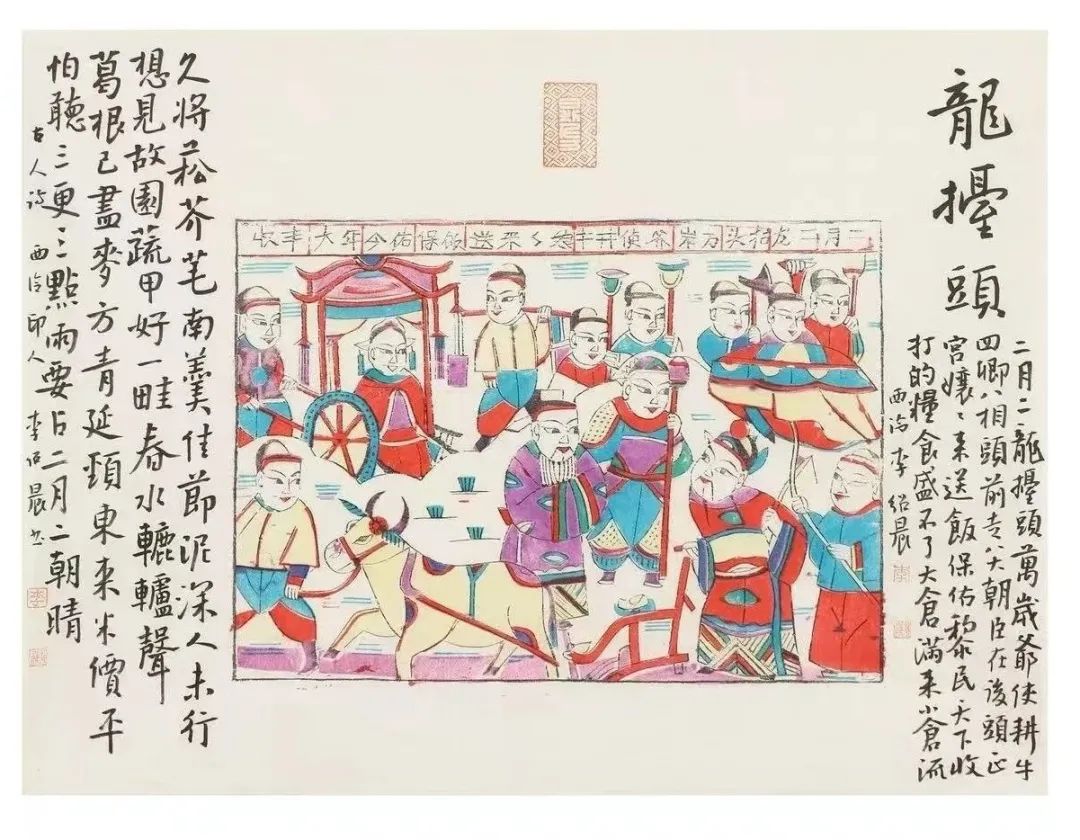 龍擡頭
二月二龍擡頭萬歲爺使耕牛
四卿八相頭前走八大朝臣在後頭正
宮孃〻来送飯保佑黎民天下收
打的糧食盛不了大倉滿来小倉流
西泠李紹晨
二月二龙抬头万岁爷井牛々来送饭保佑今年大丰收
久將菘芥芼南羹佳節泥深人未行
想見故園蔬甲好一畦春水轆轤聲
葛根已盡麥方青延頸東来米價平
怕聽三更三點雨要占二月二朝晴
古人詩 西泠印人 李紹晨書
李